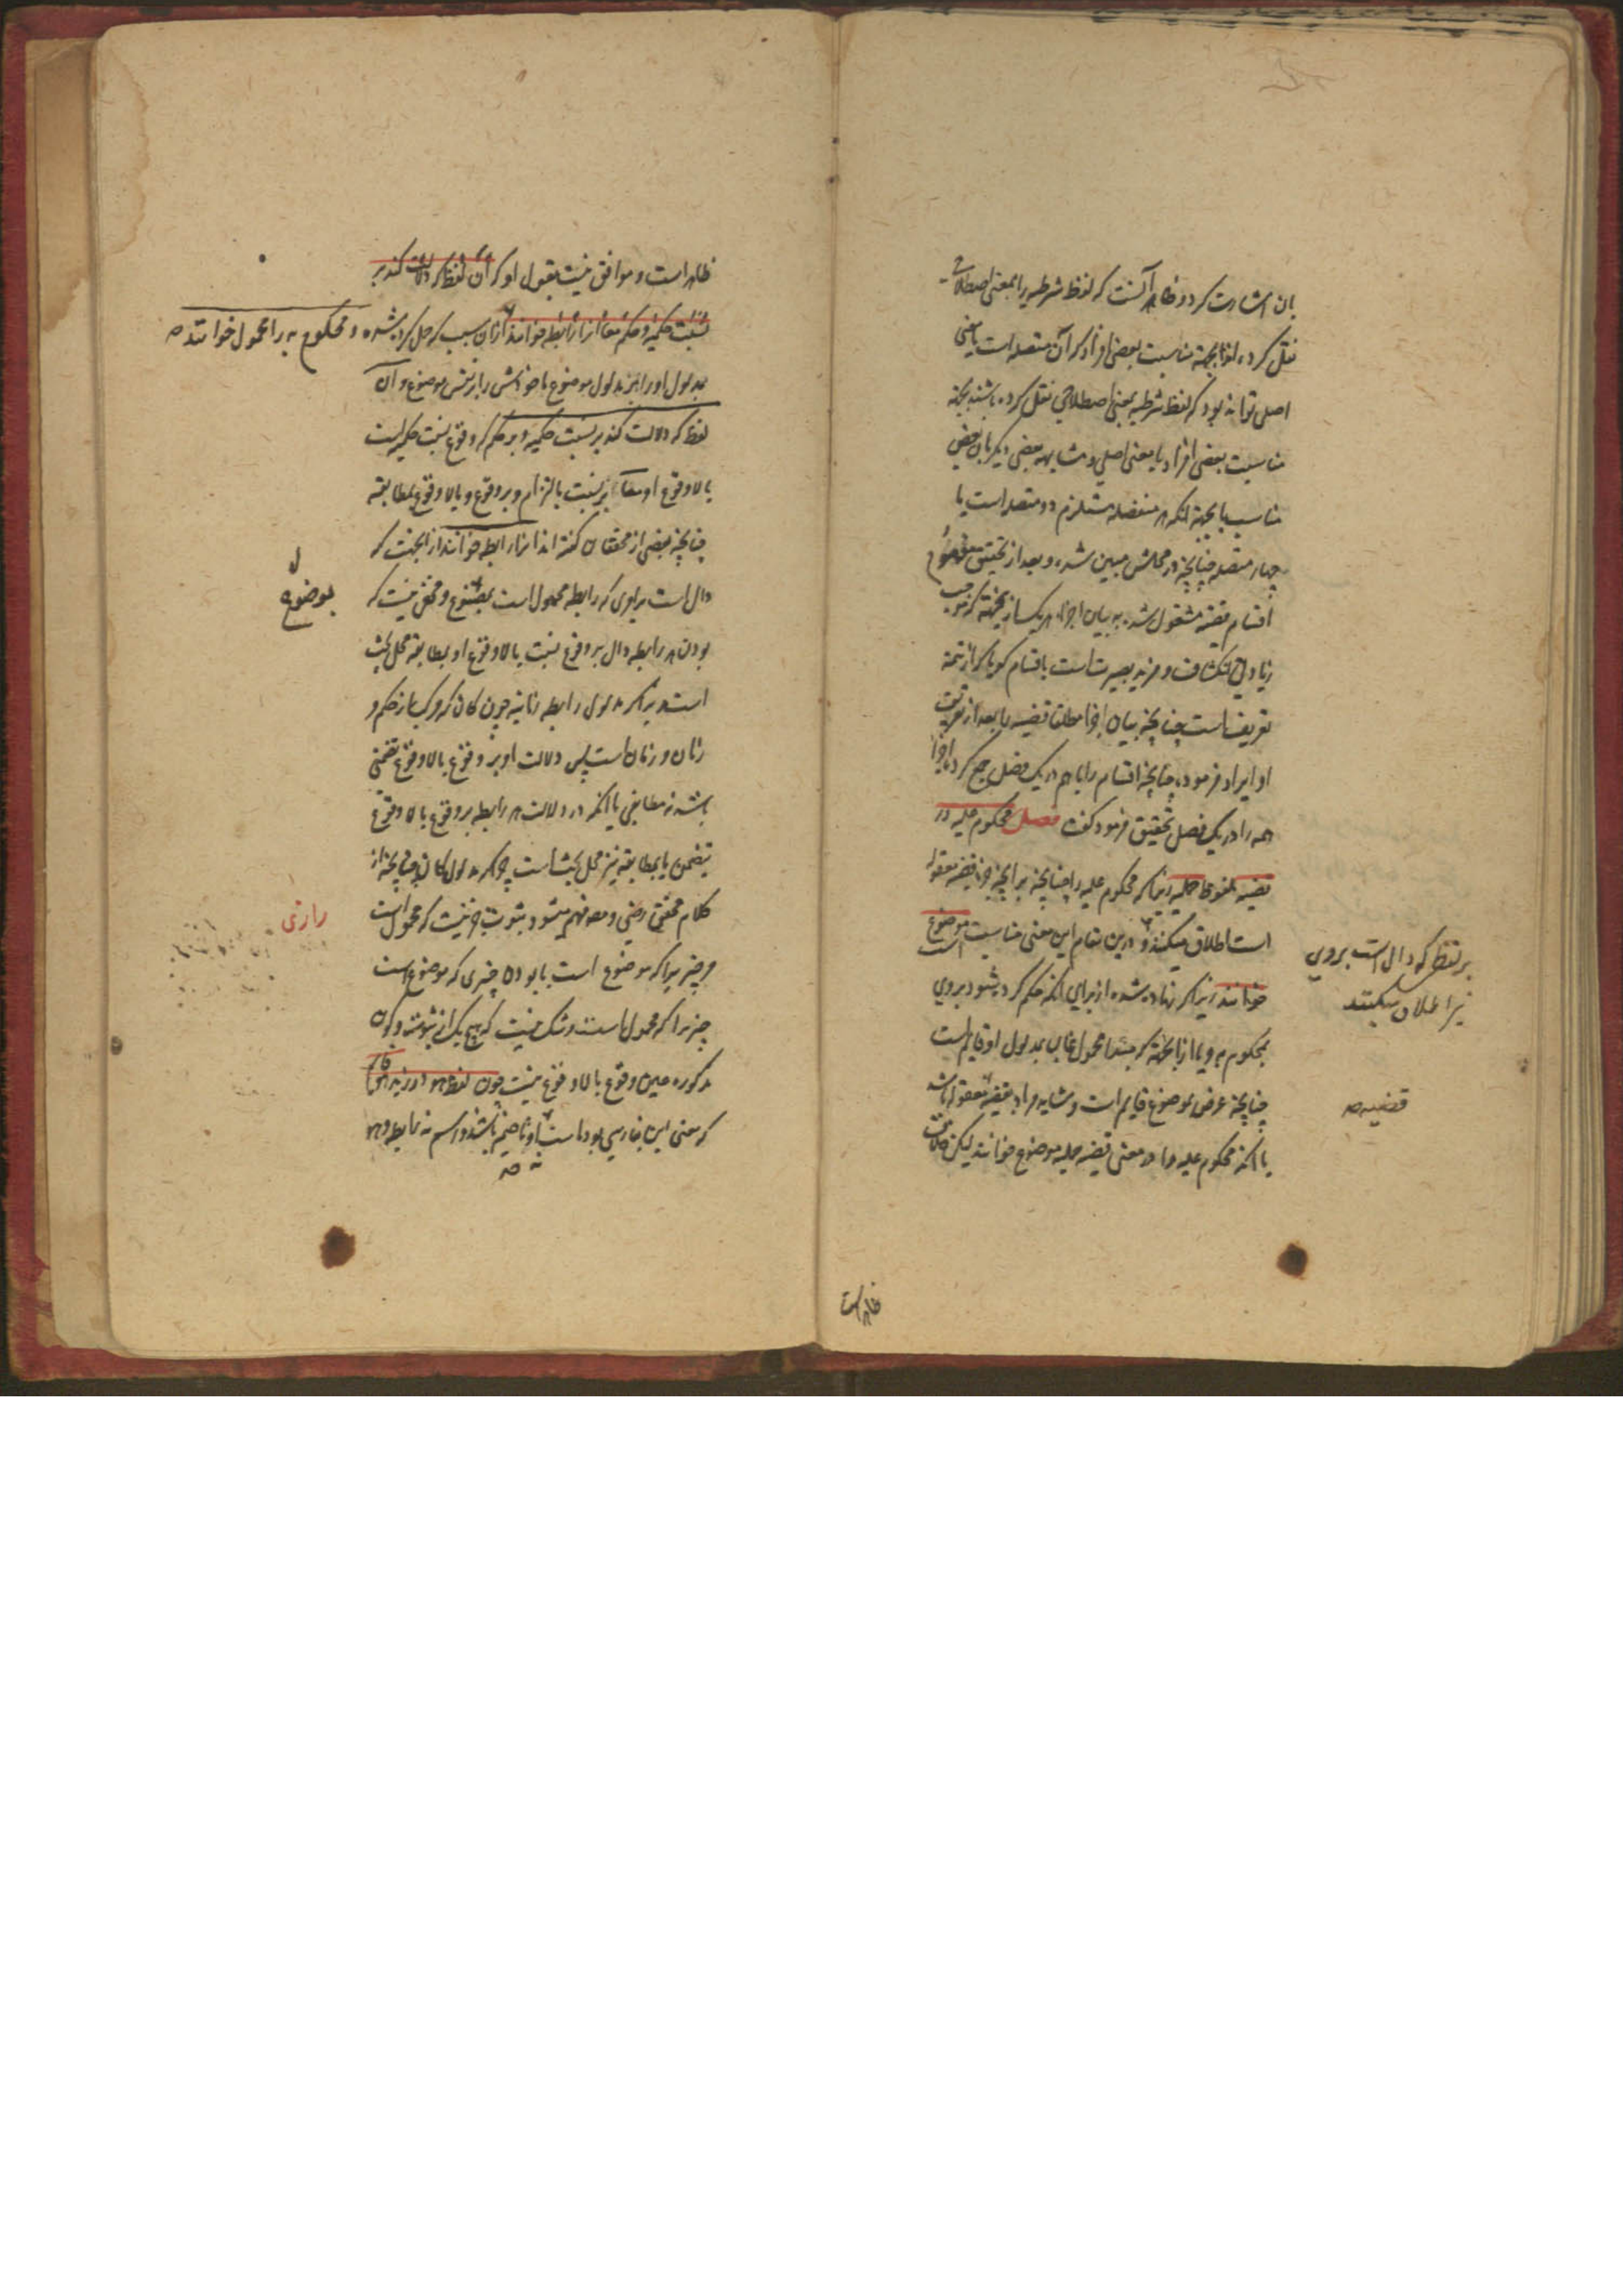 بان اشارت کرد و ظاهر آنست که لفظ شرطیه را بمعنی اصطلاحی
نقل کرده اند بجهة مناسبت بعضی افراد که آن متصله است بمعنی
اصلی تواند بود که لفظ شرطیه بمعنی اصطلاحی نقل کرده باشند بجهة
مناسبت بعضی افراد با معنی اصلی و مشابهه بعضی دیگر بان بعض
مناسب یا بجهة آنکه هر منفصله مستلزم دو متصله است یا
چهار متصله چنانچه در محلش مبین شده و بعد از تحقیق مفهوم
اقسام قضیه مشغول شد به بیان اجزاء هر یک از بجهة که موجب
زیادتی انکشاف و مزید بصیرت است باقسام گویا که از تتمه
تعریف است چنانچه بیان اجزا مطلق قضیه را بعد از تعریف
او ایراد فرمود و چنانچه اقسام را با هم در یک فصل جمع کرد اجزا
همه را در یک فصل تحقیق فرمود گفت فصل محکوم علیه در
قضیه ملفوظه حملیه زیرا که محکوم علیه را چنانچه بر آنچه جزء قضیه معقوله
است اطلاق میکنند و درین مقام این معنی مناسبت است موضوع
بر لفظ که دال است بروی
نیز اطلاق میکنند
خوانند زیرا که نهاده شده از برای آنکه حکم کرده شود بروی
بمحکوم به و یا از آنجهة که مبتدا محمول غالبا بمدلول او قایم است
چنانچه عرض بموضوع قایم است و شاید مراد بقضیه معقوله باشد
قضیه صه
با آنکه محکوم علیه را در معنی قضیه حملیه موضوع خوانند لیکن خلاف
ظاهر است
ظاهر است و موافق نیست بقول او که آن لفظ که دلالت کند بر
نسبت حکمیه و حکم معا آنرا رابطه خوانند از آن سبب که حمل کرده شده
و محکوم به را محمول خوانند صه
مدلول او را بر مدلول موضوع با خودش را بر نفس موضوع و آن
لفظ که دلالت کند بر نسبت حکمیه و بر حکم که وقوع نسبت حکمیه است
یا لا وقوع او معا بر نسبت بالتزام و بر وقوع و یا لا وقوع بمطابقه
چنانچه بعضی از محققان گفته اند آنرا رابطه خوانند از آنجهت که
دال است بر امری که رابطه محمول است بموضوع و مخفی نیست که
بموضوع
بودن هر رابطه دال بر وقوع نسبت یا لا وقوع او بمطابقه محل بحث
است زیرا که مدلول رابطه زمانیه چون کان مرکب از حکم و
زمان است پس دلالت او بر وقوع یا لا وقوع تضمنی
باشد نه مطابقی یا آنکه در دلالت هر رابطه بر وقوع یا لا وقوع
بتضمن یا بمطابقه نیز محل بحث است چرا که مدلول کان چنانچه از
کلام محقق رضی و مصه فهم میشود ثبوت چیزیست که محمول است
رازی
مر چیزیرا که موضوع است یا بودن چیزی که موضوع است
چیزیرا که محمول است و شک نیست که هیچ یک از ثبوت و کون
مذکوره عین وقوع یا لا وقوع نیست چون لفظ هو در زید هو قائم
که معنی این بفارسی بود است او ضمیر باشد و اسم نه رابطه و هو